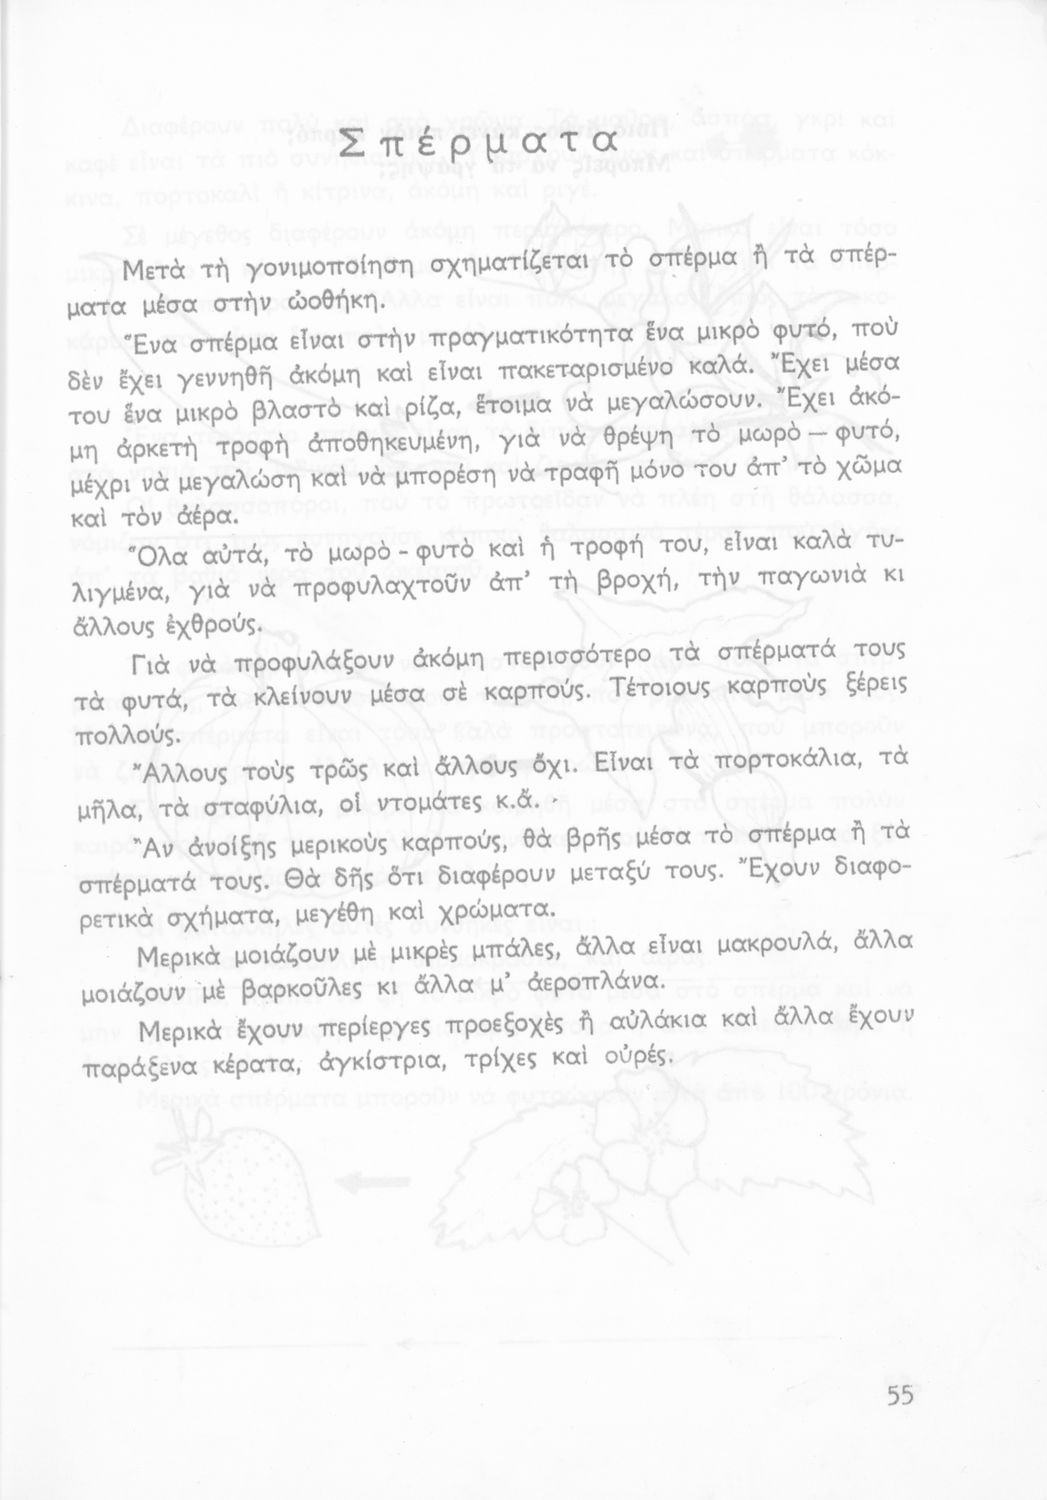 Σπέρματα
Μετὰ τὴ γονιμοποίηση σχηματίζεται τὸ σπέρμα ἢ τὰ σπέρ-
ματα μέσα στὴν ὠοθήκη.
Ἕνα σπέρμα εἶναι στὴν πραγματικότητα ἕνα μικρὸ φυτό, ποὺ
δὲν ἔχει γεννηθῆ ἀκόμη καὶ εἶναι πακεταρισμένο καλά. Ἔχει μέσα
του ἕνα μικρὸ βλαστὸ καὶ ρίζα, ἕτοιμα νὰ μεγαλώσουν. Ἔχει ἀκό-
μη ἀρκετὴ τροφὴ ἀποθηκευμένη, γιὰ νὰ θρέψη τὸ μωρὸ – φυτό,
μέχρι νὰ μεγαλώση καὶ νὰ μπορέση νὰ τραφῆ μόνο του ἀπ' τὸ χῶμα
καὶ τὸν ἀέρα.
Ὅλα αὐτά, τὸ μωρὸ - φυτὸ καὶ ἡ τροφή του, εἶναι καλὰ τυ-
λιγμένα, γιὰ νὰ προφυλαχτοῦν ἀπ' τὴ βροχή, τὴν παγωνιὰ κι
ἄλλους ἐχθρούς.
Γιὰ νὰ προφυλάξουν ἀκόμη περισσότερο τὰ σπέρματά τους
τὰ φυτά, τὰ κλείνουν μέσα σὲ καρπούς. Τέτοιους καρποὺς ξέρεις
πολλούς.
Ἄλλους τοὺς τρῶς καὶ ἄλλους ὄχι. Εἶναι τὰ πορτοκάλια, τὰ
μῆλα, τὰ σταφύλια, οἱ ντομάτες κ.ἄ.
Ἂν ἀνοίξης μερικοὺς καρπούς, θὰ βρῆς μέσα τὸ σπέρμα ἢ τὰ
σπέρματά τους. Θὰ δῆς ὅτι διαφέρουν μεταξύ τους. Ἔχουν διαφο-
ρετικὰ σχήματα, μεγέθη καὶ χρώματα.
Μερικὰ μοιάζουν μὲ μικρὲς μπάλες, ἄλλα εἶναι μακρουλά, ἄλλα
μοιάζουν μὲ βαρκοῦλες κι ἄλλα μ' ἀεροπλάνα.
Μερικὰ ἔχουν περίεργες προεξοχὲς ἢ αὐλάκια καὶ ἄλλα ἔχουν
παράξενα κέρατα, ἀγκίστρια, τρίχες καὶ οὐρές.
55